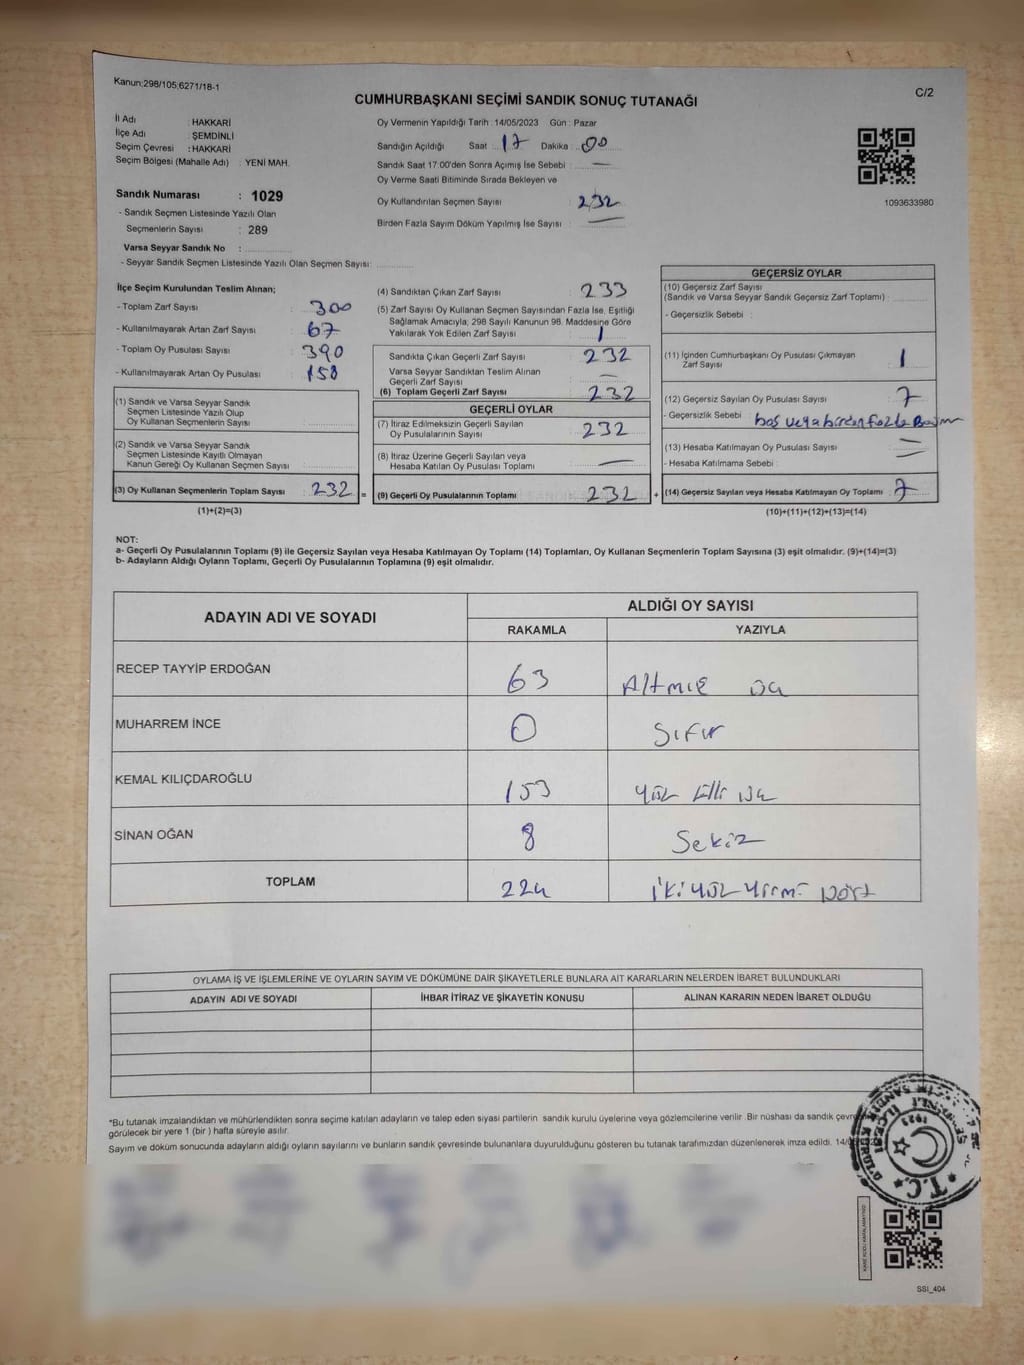 Kanun:298/105;6271/18-1
C/2
CUMHURBAŞKANI SEÇİMİ SANDIK SONUÇ TUTANAĞI
İl Adı : HAKKARİ
İlçe Adı : ŞEMDİNLİ
Seçim Çevresi : HAKKARİ
Seçim Bölgesi (Mahalle Adı) : YENİ MAH.
Sandık Numarası : 1029
- Sandık Seçmen Listesinde Yazılı Olan
Seçmenlerin Sayısı : 289
Varsa Seyyar Sandık No :
- Seyyar Sandık Seçmen Listesinde Yazılı Olan Seçmen Sayısı:
Oy Vermenin Yapıldığı Tarih : 14/05/2023 Gün : Pazar
Sandığın Açıldığı Saat 17 Dakika : 00
Sandık Saat 17:00'den Sonra Açımış İse Sebebi : —
Oy Verme Saati Bitiminde Sırada Bekleyen ve
Oy Kullandırılan Seçmen Sayısı : 232
Birden Fazla Sayım Döküm Yapılmış İse Sayısı : —
1093633980
İlçe Seçim Kurulundan Teslim Alınan;
- Toplam Zarf Sayısı : 300
- Kullanılmayarak Artan Zarf Sayısı : 67
- Toplam Oy Pusulası Sayısı : 390
- Kullanılmayarak Artan Oy Pusulası : 158
(1) Sandık ve Varsa Seyyar Sandık
Seçmen Listesinde Yazılı Olup
Oy Kullanan Seçmenlerin Sayısı :
(2) Sandık ve Varsa Seyyar Sandık
Seçmen Listesinde Kayıtlı Olmayan
Kanun Gereği Oy Kullanan Seçmen Sayısı
(3) Oy Kullanan Seçmenlerin Toplam Sayısı : 232 =
(1)+(2)=(3)
(4) Sandıktan Çıkan Zarf Sayısı : 233
(5) Zarf Sayısı Oy Kullanan Seçmen Sayısından Fazla İse, Eşitliği
Sağlamak Amacıyla; 298 Sayılı Kanunun 98. Maddesine Göre
Yakılarak Yok Edilen Zarf Sayısı : 1
Sandıkta Çıkan Geçerli Zarf Sayısı : 232
Varsa Seyyar Sandıktan Teslim Alınan
Geçerli Zarf Sayısı : —
(6) Toplam Geçerli Zarf Sayısı : 232
GEÇERLİ OYLAR
(7) İtiraz Edilmeksizin Geçerli Sayılan
Oy Pusulalarının Sayısı : 232
(8) İtiraz Üzerine Geçerli Sayılan veya
Hesaba Katılan Oy Pusulası Toplamı : —
(9) Geçerli Oy Pusulalarının Toplamı : 232 +
GEÇERSİZ OYLAR
(10) Geçersiz Zarf Sayısı
(Sandık ve Varsa Seyyar Sandık Geçersiz Zarf Toplamı) :
- Geçersizlik Sebebi :
(11) İçinden Cumhurbaşkanı Oy Pusulası Çıkmayan
Zarf Sayısı : 1
(12) Geçersiz Sayılan Oy Pusulası Sayısı : 7
- Geçersizlik Sebebi : boş veya birden fazla
(13) Hesaba Katılmayan Oy Pusulası Sayısı : —
- Hesaba Katılmama Sebebi : —
(14) Geçersiz Sayılan veya Hesaba Katılmayan Oy Toplamı : 7
(10)+(11)+(12)+(13)=(14)
NOT:
a- Geçerli Oy Pusulalarının Toplamı (9) ile Geçersiz Sayılan veya Hesaba Katılmayan Oy Toplamı (14) Toplamları, Oy Kullanan Seçmenlerin Toplam Sayısına (3) eşit olmalıdır. (9)+(14)=(3)
b- Adayların Aldığı Oyların Toplamı, Geçerli Oy Pusulalarının Toplamına (9) eşit olmalıdır.
ADAYIN ADI VE SOYADI
ALDIĞI OY SAYISI
RAKAMLA YAZIYLA
RECEP TAYYİP ERDOĞAN 63 Altmış üç
MUHARREM İNCE 0 Sıfır
KEMAL KILIÇDAROĞLU 153 Yüz Elli üç
SİNAN OĞAN 8 Sekiz
TOPLAM 224 İki yüz yirmi Dört
OYLAMA İŞ VE İŞLEMLERİNE VE OYLARIN SAYIM VE DÖKÜMÜNE DAİR ŞİKAYETLERLE BUNLARA AİT KARARLARIN NELERDEN İBARET BULUNDUKLARI
ADAYIN ADI VE SOYADI İHBAR İTİRAZ VE ŞİKAYETİN KONUSU ALINAN KARARIN NEDEN İBARET OLDUĞU
*Bu tutanak imzalandıktan ve mühürlendikten sonra seçime katılan adayların ve talep eden siyasi partilerin sandık kurulu üyelerine veya gözlemcilerine verilir .Bir nüshası da sandık
görülecek bir yere 1 (bir ) hafta süreyle asılır.
Sayım ve döküm sonucunda adayların aldığı oyların sayılarını ve bunların sandık çevresinde bulunanlara duyurulduğunu gösteren bu tutanak tarafımızdan düzenlenerek imza edildi.
T.C.
SSI_404